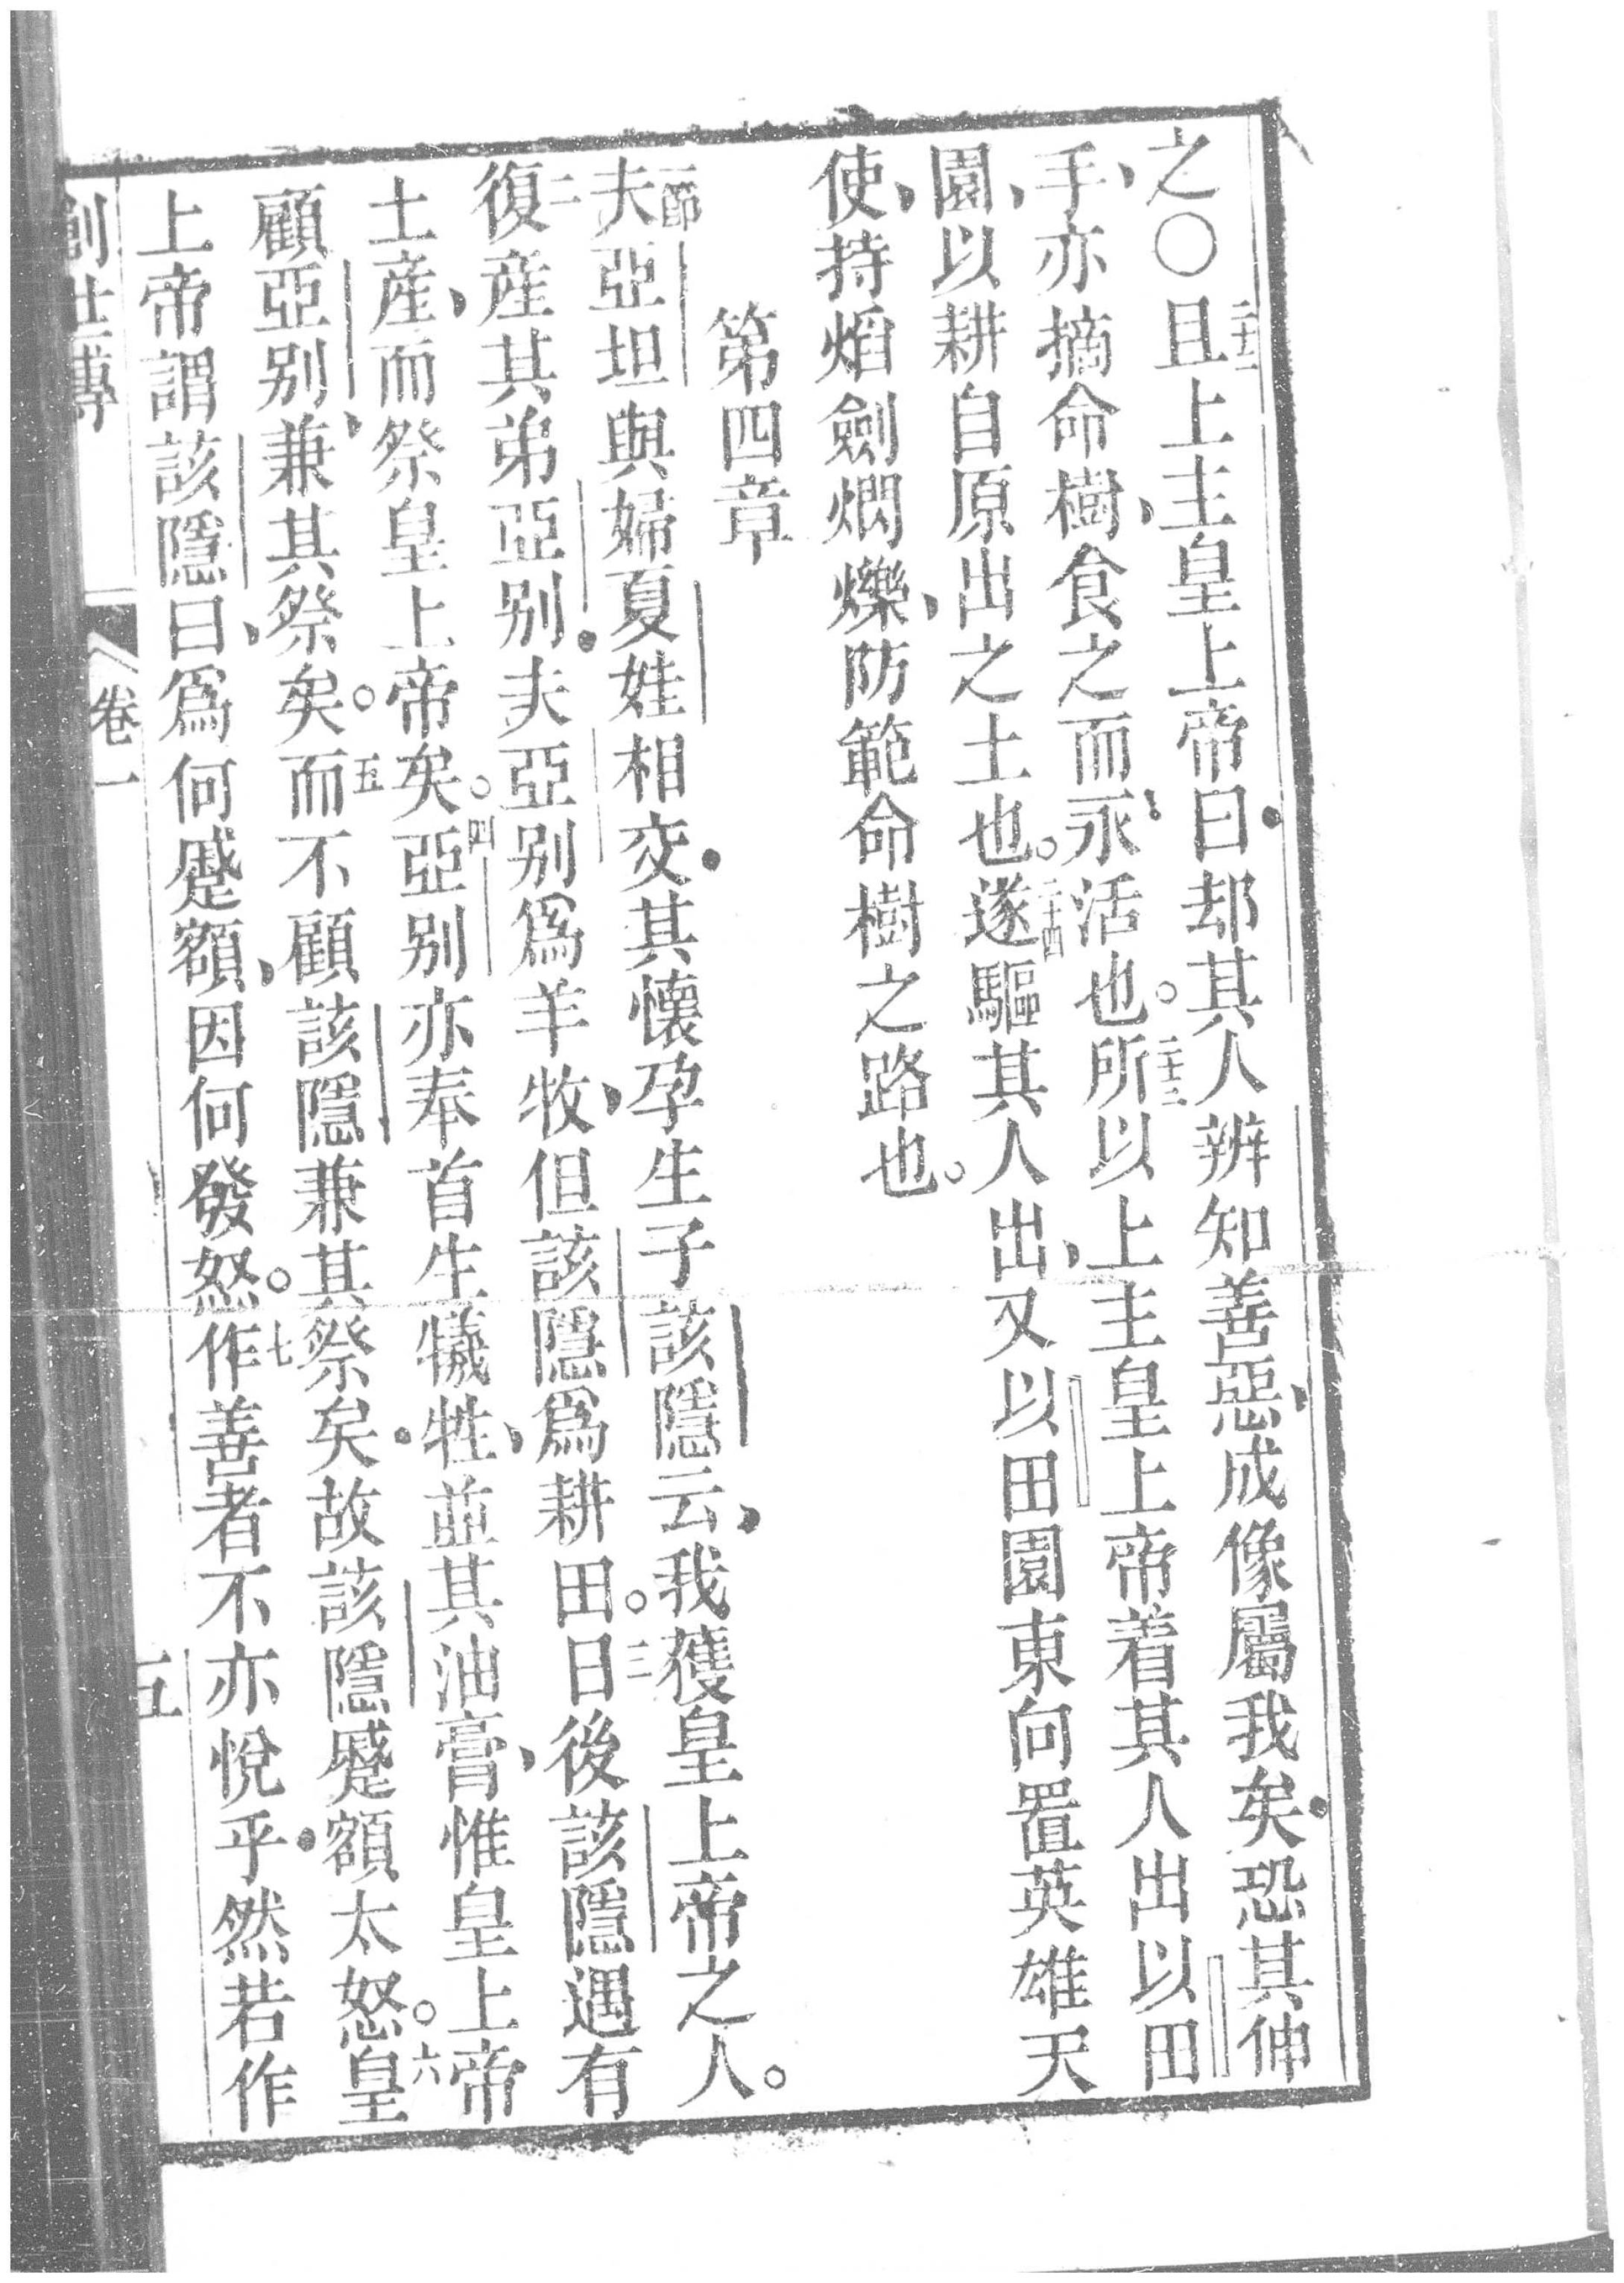 之〇二十二且上主皇上帝曰却其人辨知善惡、成像屬我矣恐其伸
手、亦摘命樹、食之而永活也。二十三所以上主皇上帝着其人出以田
園、以耕自原出之土也。二十四遂驅其人出、又以田園東向置英雄天
使、持焰劍爓爍、防範命樹之路也。
第四章
一節夫亞坦與婦夏娃相交其懷孕生子該隱云、我獲皇上帝之人。
二復產其弟亞別夫亞別爲羊牧、但該隱爲耕田。三日後該隱遇有
土產、而祭皇上帝矣。四亞別亦奉首生犧牲、並其油膏、惟皇上帝
顧亞別、兼其祭矣。五而不顧該隱兼其祭矣故該隱蹙額太怒。六皇
上帝謂該隱曰、爲何蹙額、因何發怒。七作善者不亦悅乎然若作
創世傳 卷一 五